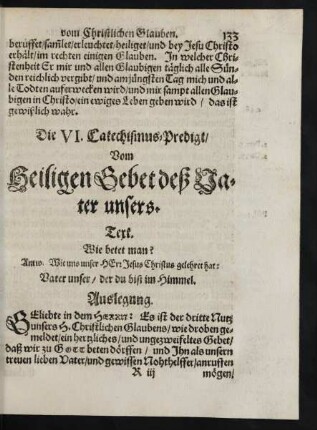 vom Christlichen Glauben. 133
beruffet/samlet/erleuchtet/heiliget/und bey Jesu Christo
erhält/im rechten einigen Glauben. In welcher Chri-
stenheit Er mir und allen Glaubigen täglich alle Sün-
den reichlich vergibt/ und am jüngsten Tag mich und al-
le Todten aufferwecken wird/und mir sampt allen Glau-
bigen in Christo/ein ewiges Leben geben wird / das ist
gewißlich wahr.
Die VI. Catechismus-Predigt/
Vom
Heiligen Gebet deß Va-
ter unsers.
Text.
Wie betet man?
Antw. Wie uns unser HErr Jesus Christus gelehret hat:
Vater unser / der du bist im Himmel.
Auslegung.
GEliebte in dem HERRN: Es ist der dritte Nutz
unsers H. Christlichen Glaubens/ wie droben ge-
meldet/ein hertzliches/und ungezweifeltes Gebet/
daß wir zu GOTT beten dörffen / und Ihn als unsern
treuen lieben Vater/und gewissen Nohthelffer/anruffen
R iij mögen/